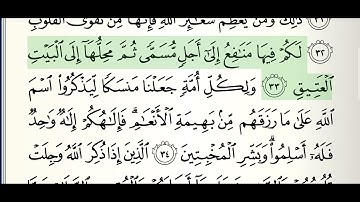 ذَٰلِكَ وَمَن يُعَظِّمْ شَعَٰٓئِرَ ٱللَّهِ فَإِنَّهَا مِن تَقْوَى ٱلْقُلُوبِ
٣٢ لَكُمْ فِيهَا مَنَٰفِعُ إِلَىٰٓ أَجَلٍ مُّسَمًّى ثُمَّ مَحِلُّهَآ إِلَى ٱلْبَيْتِ
ٱلْعَتِيقِ ٣٣ وَلِكُلِّ أُمَّةٍ جَعَلْنَا مَنسَكًا لِّيَذْكُرُوا۟ ٱسْمَ
ٱللَّهِ عَلَىٰ مَا رَزَقَهُم مِّنۢ بَهِيمَةِ ٱلْأَنْعَٰمِ ۗ فَإِلَٰهُكُمْ إِلَٰهٌ وَٰحِدٌ
فَلَهُۥٓ أَسْلِمُوا۟ ۗ وَبَشِّرِ ٱلْمُخْبِتِينَ ٣٤ ٱلَّذِينَ إِذَا ذُكِرَ ٱللَّهُ وَجِلَتْ